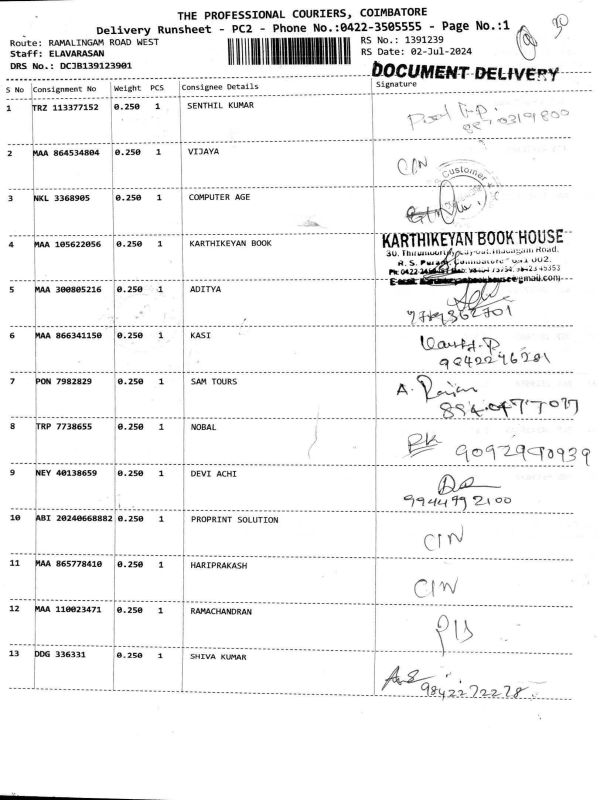 THE PROFESSIONAL COURIERS, COIMBATORE
Delivery Runsheet - PC2 - Phone No.:0422-3505555 - Page No.:1
Route: RAMALINGAM ROAD WEST RS No.: 1391239
Staff: ELAVARASAN RS Date: 02-Jul-2024
DRS No.: DCJB139123901
DOCUMENT DELIVERY
S No Consignment No Weight PCS Consignee Details Signature
1 TRZ 113377152 0.250 1 SENTHIL KUMAR
2 MAA 864534804 0.250 1 VIJAYA CIN
Customer
3 NKL 3368905 0.250 1 COMPUTER AGE
4 MAA 105622056 0.250 1 KARTHIKEYAN BOOK
KARTHIKEYAN BOOK HOUSE
R. S. Puram, Coimbatore - 641 002.
5 MAA 300805216 0.250 1 ADITYA
6 MAA 866341150 0.250 1 KASI
9842246281
7 PON 7982829 0.250 1 SAM TOURS A. Rajan
8 TRP 7738655 0.250 1 NOBAL
9 NEY 40138659 0.250 1 DEVI ACHI
9944992100
10 ABI 20240668882 0.250 1 PROPRINT SOLUTION CIN
11 MAA 865778410 0.250 1 HARIPRAKASH CIN
12 MAA 110023471 0.250 1 RAMACHANDRAN
13 DDG 336331 0.250 1 SHIVA KUMAR
9842272278